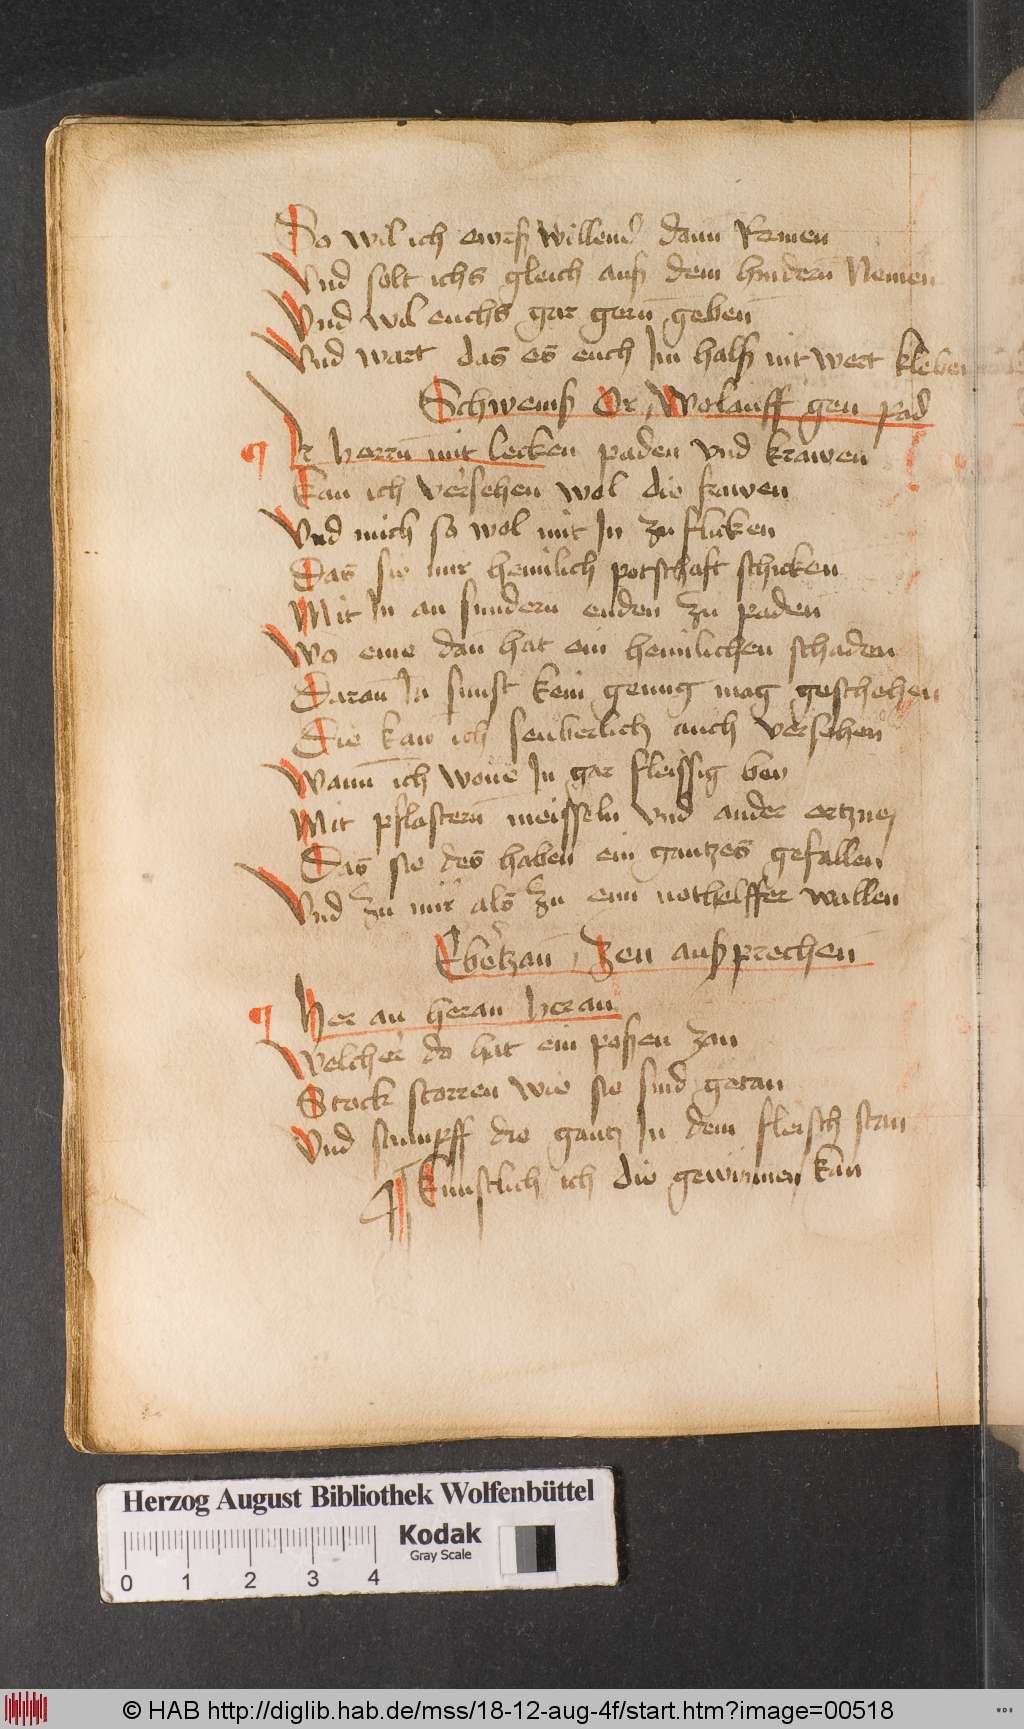 Do wil ich ewrß willens dann Remen
Vnd solt ichs gleich auß dem hindern Nemen
Vnd wil euchs gar gern geben
Vnd wart das es euch Im halß nit wert kleben
Schweinß Or, Wolauff gen pad
¶ Ir herrn mit lecken paden vnd krawen
Kan ich versehen wol die frawen
Vnd mich so wol mit In zu flicken
Das sie mir heimlich potschaft schicken
Mit In an sundern enden zu paden
Wo eine dan hat ein heimlichen schaden
Daran In sunst kein genug mag geschehen
Die kan ich seuberlich auch versehen
Wann ich wone In gar fleissig bey
Mit pflastern meisseln vnd ander ertzney
Das sie des haben ein gantzes gefallen
Vnd zu mir als zu eim nothelffer wallen
Eberzan, Zen außprechen
¶ Her an heran heran
Welcher do hat ein poßen zan
Stock storren wie sie sind getan
Vnd stumpff die gantz In dem fleisch stan
Kunstlich ich die gewinnen kan
Herzog August Bibliothek Wolfenbüttel
Kodak
Gray Scale
0 1 2 3 4
© HAB http://diglib.hab.de/mss/18-12-aug-4f/start.htm?image=00518